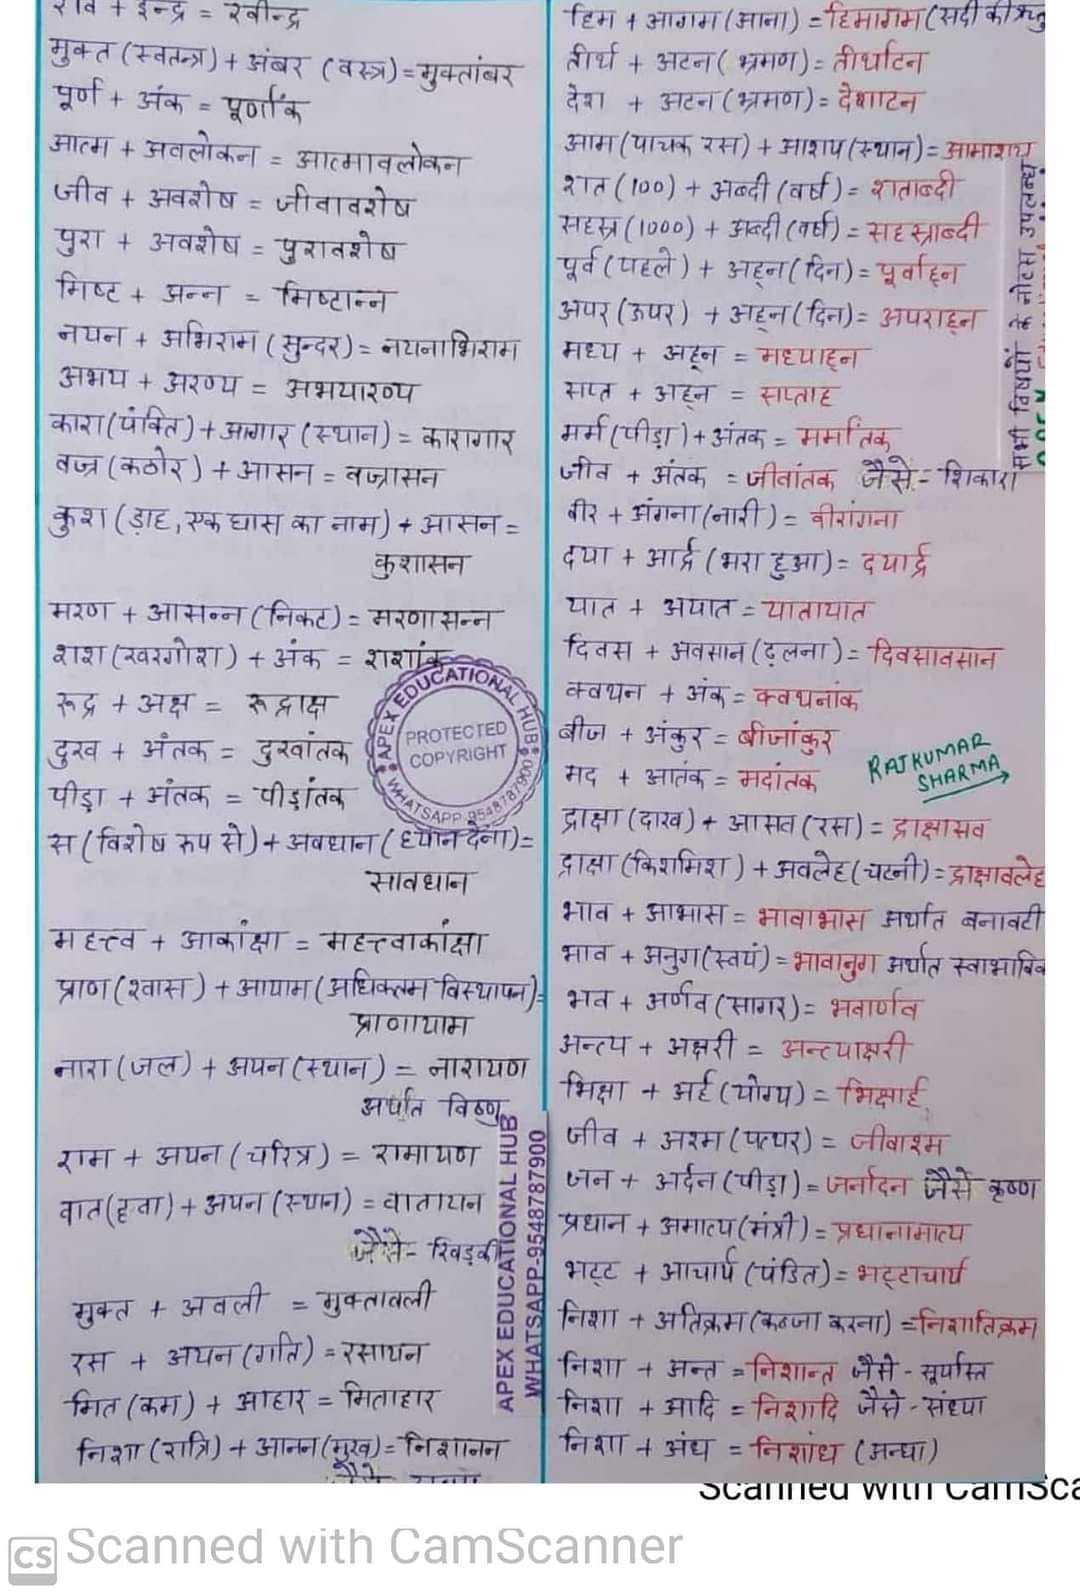 रवि + इन्द्र = रवीन्द्र
मुक्त (स्वतन्त्र) + अंबर (वस्त्र) = मुक्तांबर
पूर्ण + अंक = पूर्णांक
आत्म + अवलोकन = आत्मावलोकन
जीव + अवशेष = जीवावशेष
पुरा + अवशेष = पुरावशेष
मिष्ट + अन्न = मिष्टान्न
नयन + अभिराम (सुन्दर) = नयनाभिराम
अभय + अरण्य = अभयारण्य
कारा (पंक्ति) + आगार (स्थान) = कारागार
वज्र (कठोर) + आसन = वज्रासन
कुश (डाह, एक घास का नाम) + आसन =
कुशासन
मरण + आसन्न (निकट) = मरणासन्न
शश (खरगोश) + अंक = शशांक
रूद्र + अक्ष = रूद्राक्ष
दुख + अंतक = दुखांतक
पीड़ा + अंतक = पीड़ांतक
स (विशेष रूप से) + अवधान (ध्यान देना) =
सावधान
महत्त्व + आकांक्षा = महत्त्वाकांक्षा
प्राण (श्वास) + आयाम (अधिकतम विस्थापन) =
प्राणायाम
नारा (जल) + अयन (स्थान) = नारायण
अर्थात विष्णु
राम + अयन (चरित्र) = रामायण
वात (हवा) + अयन (स्थान) = वातायन
जैसे - खिड़की
मुक्त + अवली = मुक्तावली
रस + अयन (गति) = रसायन
मित (कम) + आहार = मिताहार
निशा (रात्रि) + आनन (मुख) = निशानन
जैसे
हिम + आगम (आना) = हिमागम (सर्दी की ऋतु
तीर्थ + अटन (भ्रमण) = तीर्थाटन
देश + अटन (भ्रमण) = देशाटन
आम (पाचक रस) + आशय (स्थान) = आमाशय
शत (100) + अब्दी (वर्ष) = शताब्दी
सहस्त्र (1000) + अब्दी (वर्ष) = सहस्त्राब्दी
पूर्व (पहले) + अह्न (दिन) = पूर्वाह्न
अपर (ऊपर) + अह्न (दिन) = अपराह्न
मध्य + अह्न = मध्याह्न
सप्त + अह्न = सप्ताह
मर्म (पीड़ा) + अंतक = मर्मांतक
जीव + अंतक = जीवांतक जैसे - शिकारी
वीर + अंगना (नारी) = वीरांगना
दया + आर्द्र (भरा हुआ) = दयार्द्र
यात + अयात = यातायात
दिवस + अवसान (ढ़लना) = दिवसावसान
क्वथन + अंक = क्वथनांक
बीज + अंकुर = बीजांकुर
मद + आतंक = मदांतक
RAJKUMAR
SHARMA
द्राक्षा (दाख) + आसव (रस) = द्राक्षासव
द्राक्षा (किशमिश) + अवलेह (चटनी) = द्राक्षावलेह
भाव + आभास = भावाभास अर्थात बनावटी
भाव + अनुग (स्वयं) = भावानुग अर्थात स्वाभाविक
भव + अर्णव (सागर) = भवार्णव
अन्त्य + अक्षरी = अन्त्याक्षरी
भिक्षा + अर्ह (योग्य) = भिक्षार्ह
जीव + अश्म (पत्थर) = जीवाश्म
जन + अर्दन (पीड़ा) = जर्नादन जैसे कृष्ण
प्रधान + अमात्य (मंत्री) = प्रधानामात्य
भट्ट + आचार्य (पंडित) = भट्टाचार्य
निशा + अतिक्रम (कब्जा करना) = निशातिक्रम
निशा + अन्त = निशान्त जैसे - सूर्यास्त
निशा + आदि = निशादि जैसे - संध्या
निशा + अंध = निशांध (अन्धा)
APEX EDUCATIONAL HUB
PROTECTED
COPYRIGHT
WHATSAPP 9548787900
APEX EDUCATIONAL HUB
WHATSAPP-9548787900
सभी विषयों के नोटस उपलब्ध
Scanned with CamSca
CS Scanned with CamScanner